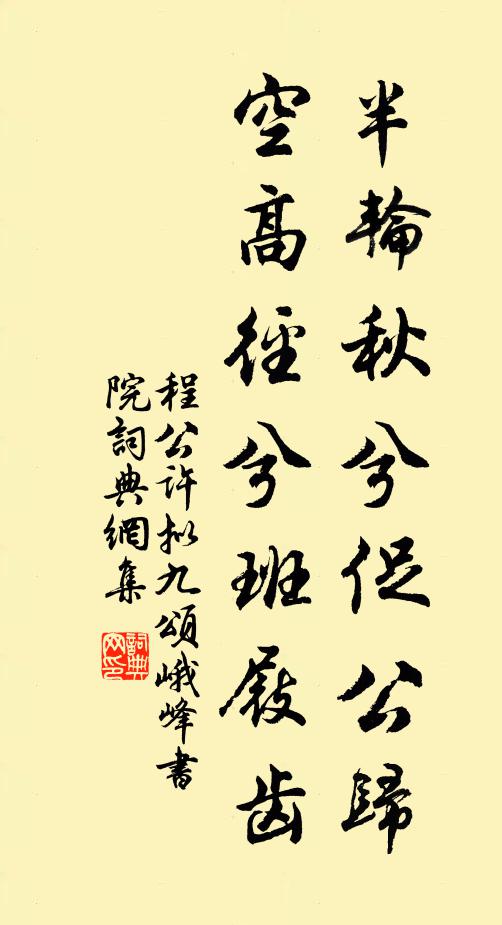 半輪秋兮促公歸
空高徑兮班屐齒
程公许拟九頌峨峰書
院詞典網集
詞典網印